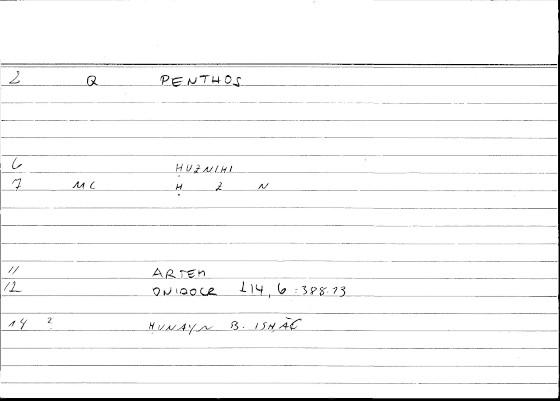 2 Q PENTHOS
6 ḤUZNIHI
7 MC Ḥ Z N
11 ARTEM
12 ONIROCR 114, 6 : 388.13
14 2 HUNAYN B. ISHĀC